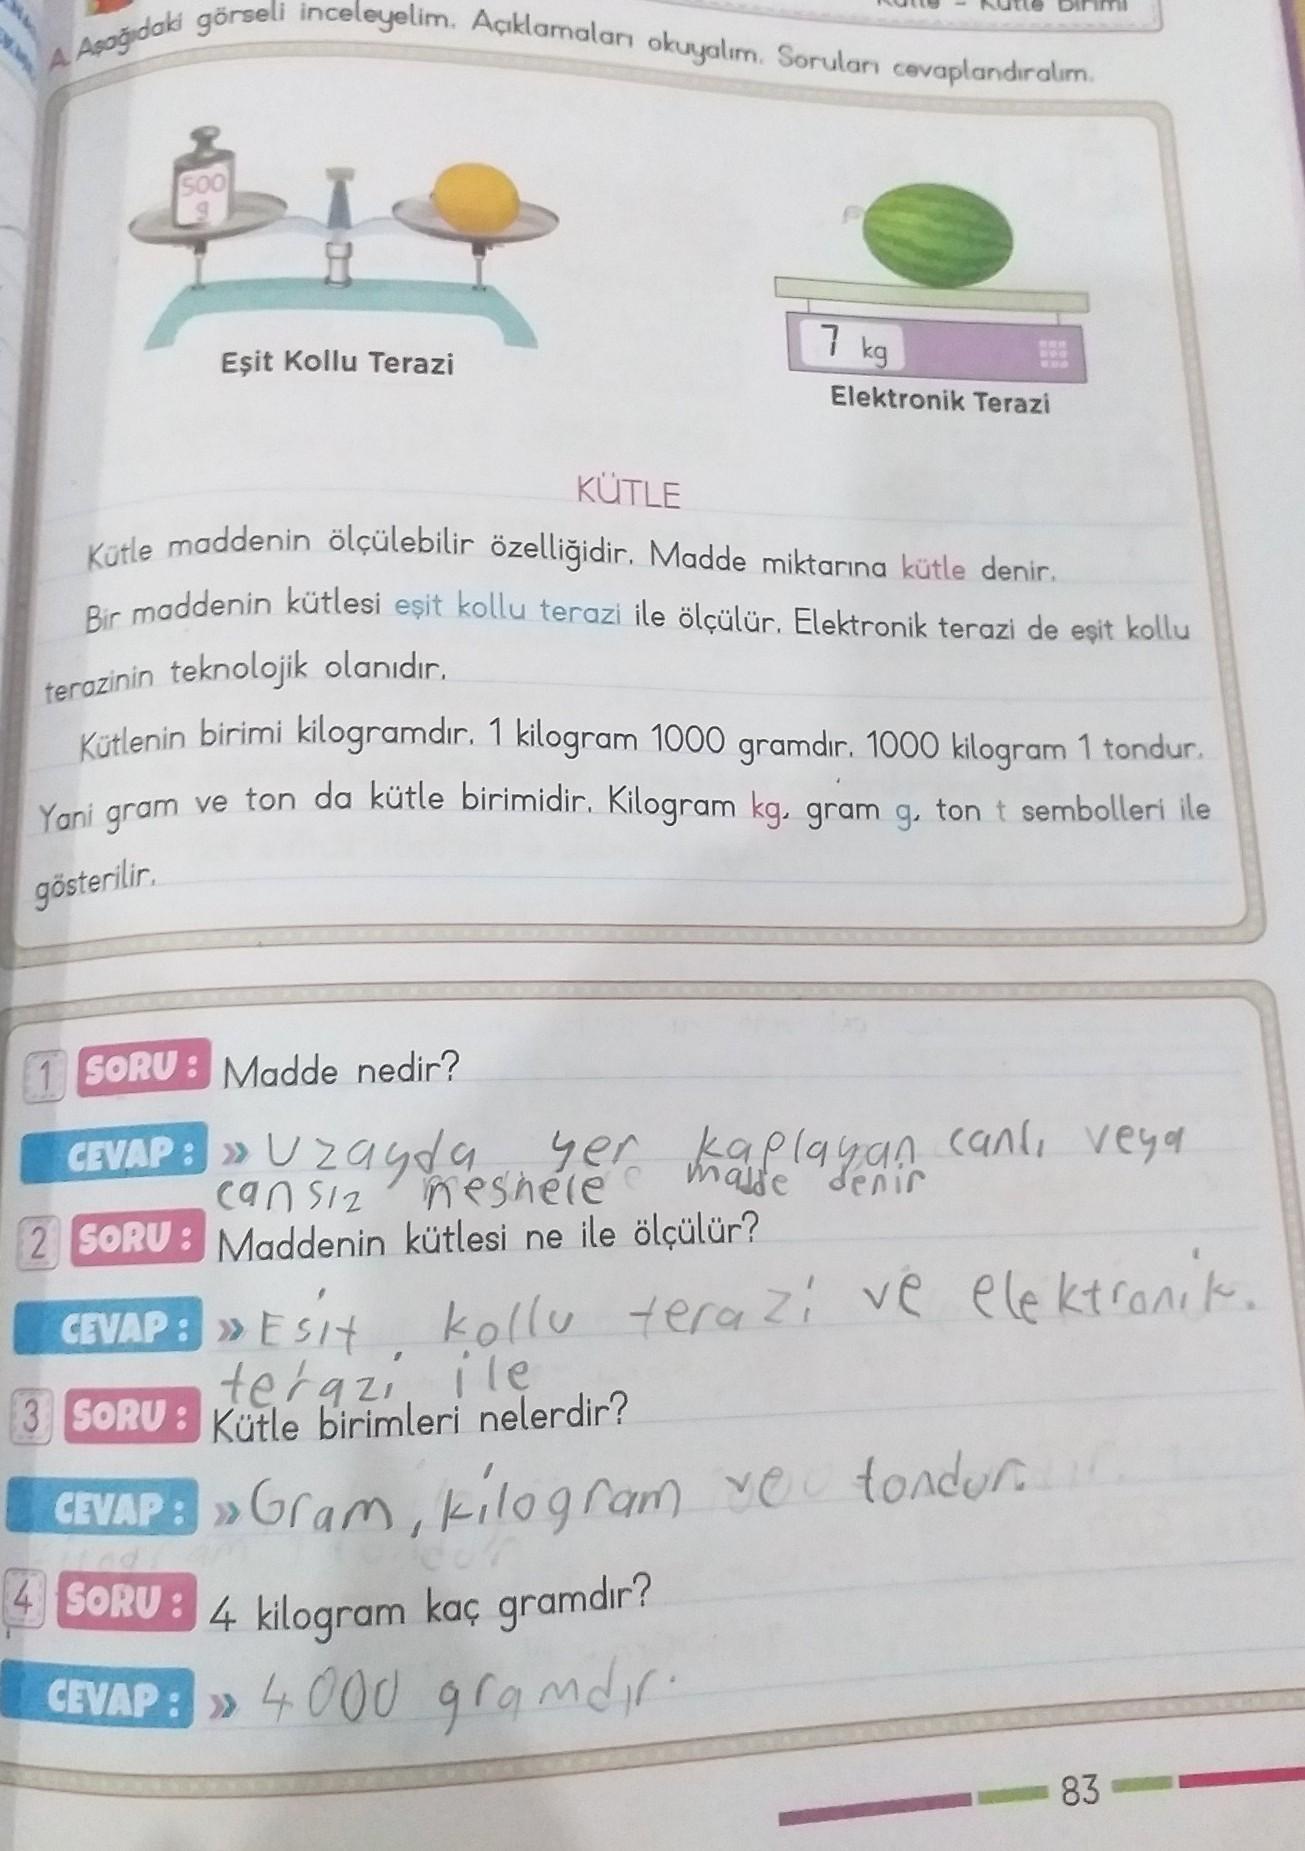 Kütle - Kütle Birimi
A. Aşağıdaki görseli inceleyelim. Açıklamaları okuyalım. Soruları cevaplandıralım.
500
g
7 kg
Eşit Kollu Terazi
Elektronik Terazi
KÜTLE
Kütle maddenin ölçülebilir özelliğidir. Madde miktarına kütle denir.
Bir maddenin kütlesi eşit kollu terazi ile ölçülür. Elektronik terazi de eşit kollu
terazinin teknolojik olanıdır.
Kütlenin birimi kilogramdır. 1 kilogram 1000 gramdır. 1000 kilogram 1 tondur.
Yani gram ve ton da kütle birimidir. Kilogram kg, gram g, ton t sembolleri ile
gösterilir.
1 SORU : Madde nedir?
CEVAP : » Uzayda yer kaplayan canlı veya
cansız nesnele madde denir
2 SORU : Maddenin kütlesi ne ile ölçülür?
CEVAP : » Esit kollu terazi ve elektronik.
terazi ile
3 SORU : Kütle birimleri nelerdir?
CEVAP : » Gram, kilogram ve tondur.
4 SORU : 4 kilogram kaç gramdır?
CEVAP : » 4000 gramdır.
83